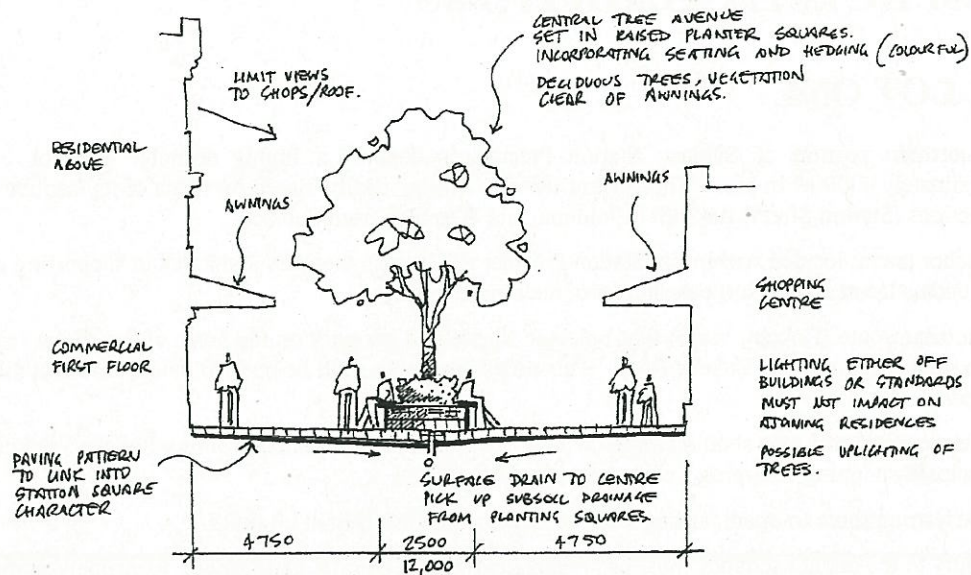 CENTRAL TREE AVENUE
SET IN RAISED PLANTER SQUARES.
INCORPORATING SEATING AND HEDGING (COLOURFUL)
DECIDUOUS TREES, VEGETATION
CLEAR OF AWNINGS.
LIMIT VIEWS
TO SHOPS/ROOF.
RESIDENTIAL
ABOVE
AWNINGS
AWNINGS
SHOPPING
CENTRE
COMMERCIAL
FIRST FLOOR
LIGHTING EITHER OFF
BUILDINGS OR STANDARDS
MUST NOT IMPACT ON
ATONING RESIDENCES
POSSIBLE UPLIGHTING OF
TREES.
PAVING PATTERN
TO LINK INTO
STATION SQUARE
CHARACTER
SURFACE DRAIN TO CENTRE
PICK UP SUBSOIL DRAINAGE
FROM PLANTING SQUARES
4750 2500 4750
12,000